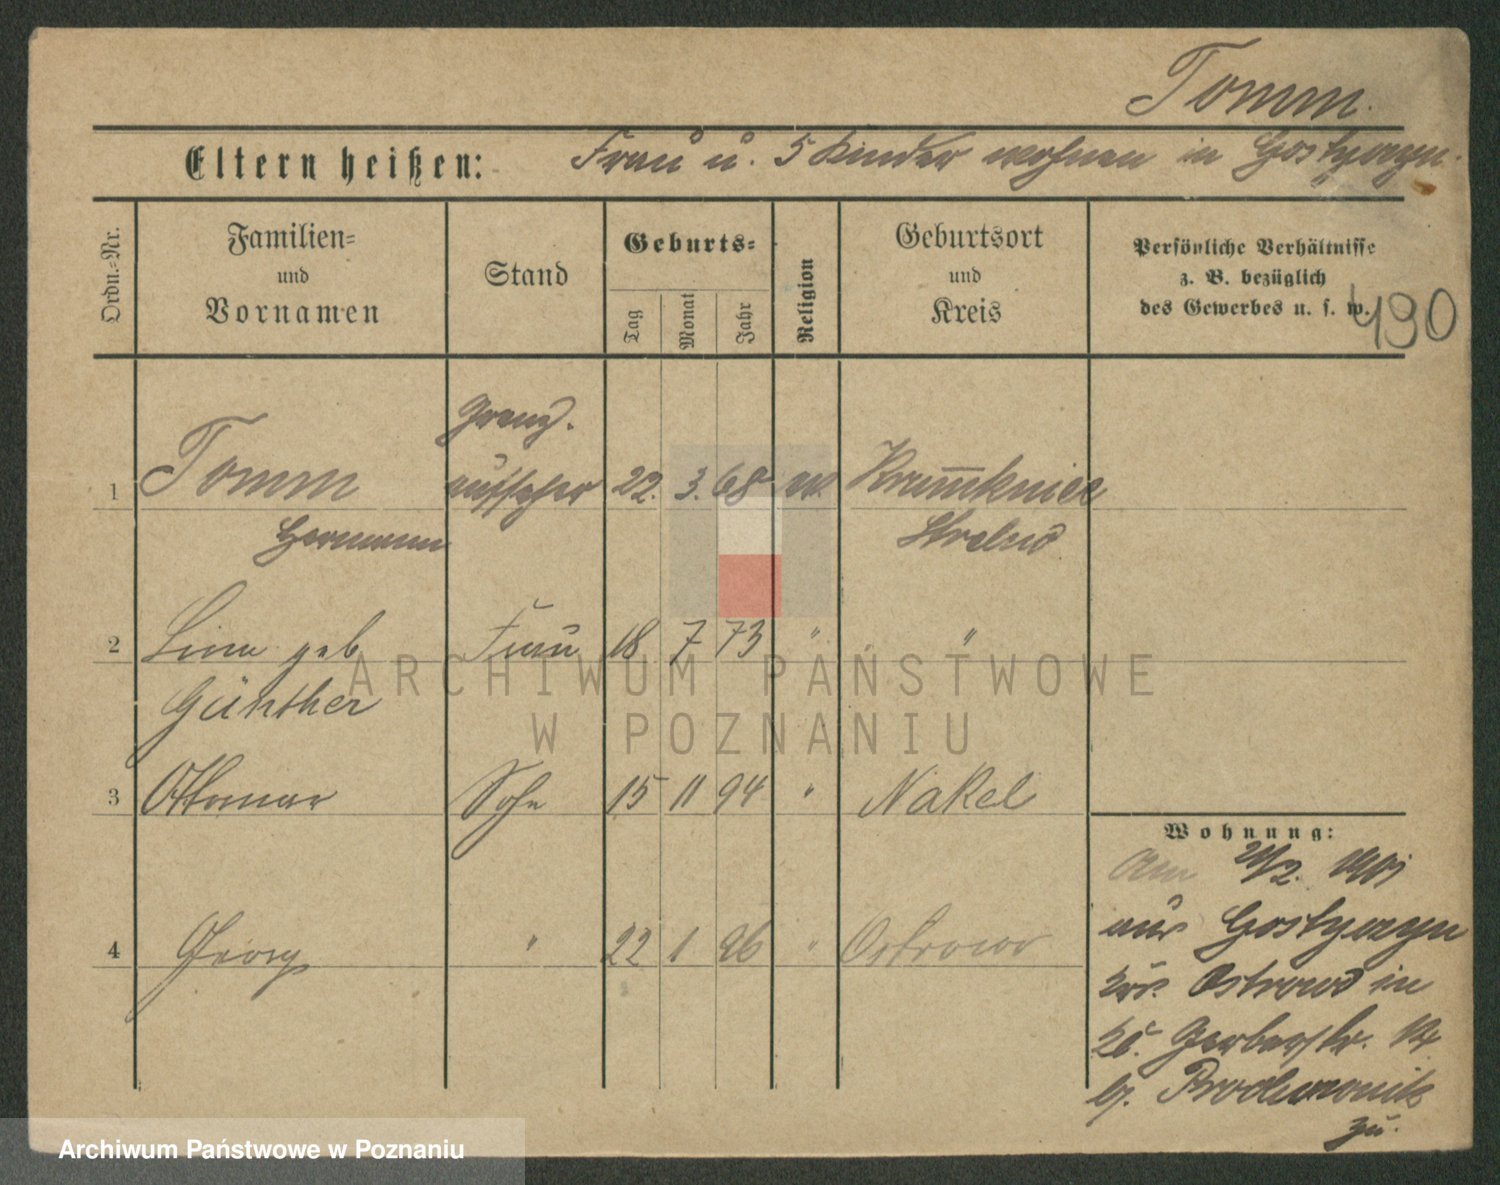 Tomm.
Eltern heißen: Frau u. 5 Kinder wohnen in Gostyczyn.
Ordn.-Nr.
Familien-
und
Vornamen
Stand
Geburts-
Tag
Monat
Jahr
Religion
Geburtsort
und
Kreis
Persönliche Verhältnisse
z. B. bezüglich
des Gewerbes u. s. w.
490
Grenz.
1 Tomm aufseher 22. 3. 68 ev. Krumknie
Hermann Strelno
2 Lina geb Frau 18 7 73 " "
Günther
3 Ottomar Sohn 15 11 94 " Nakel
4 Georg " 22 1 96 " Ostrowo
Wohnung:
am /2. 1901
aus Gostyczyn
Krs. Ostrowo in
Gerberstr.
b. zu.
ARCHIWUM PAŃSTWOWE
W POZNANIU
Archiwum Państwowe w Poznaniu